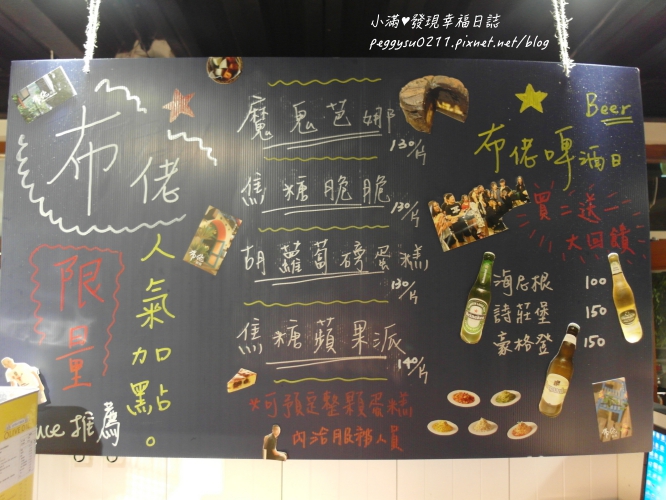 小滿♥發現幸福日誌
peggysu0211.pixnet.net/blog
布佬
限量
人氣加點。
uce推薦
魔鬼芭娜
130/片
焦糖脆脆
130/片
胡蘿蔔磅蛋糕
130/片
焦糖蘋果派
140/片
*可預定整顆蛋糕
內洽服務人員
Beer
布佬啤酒日
買二送二
大回饋
海尼根 100
詩莊堡 150
豪格登 150